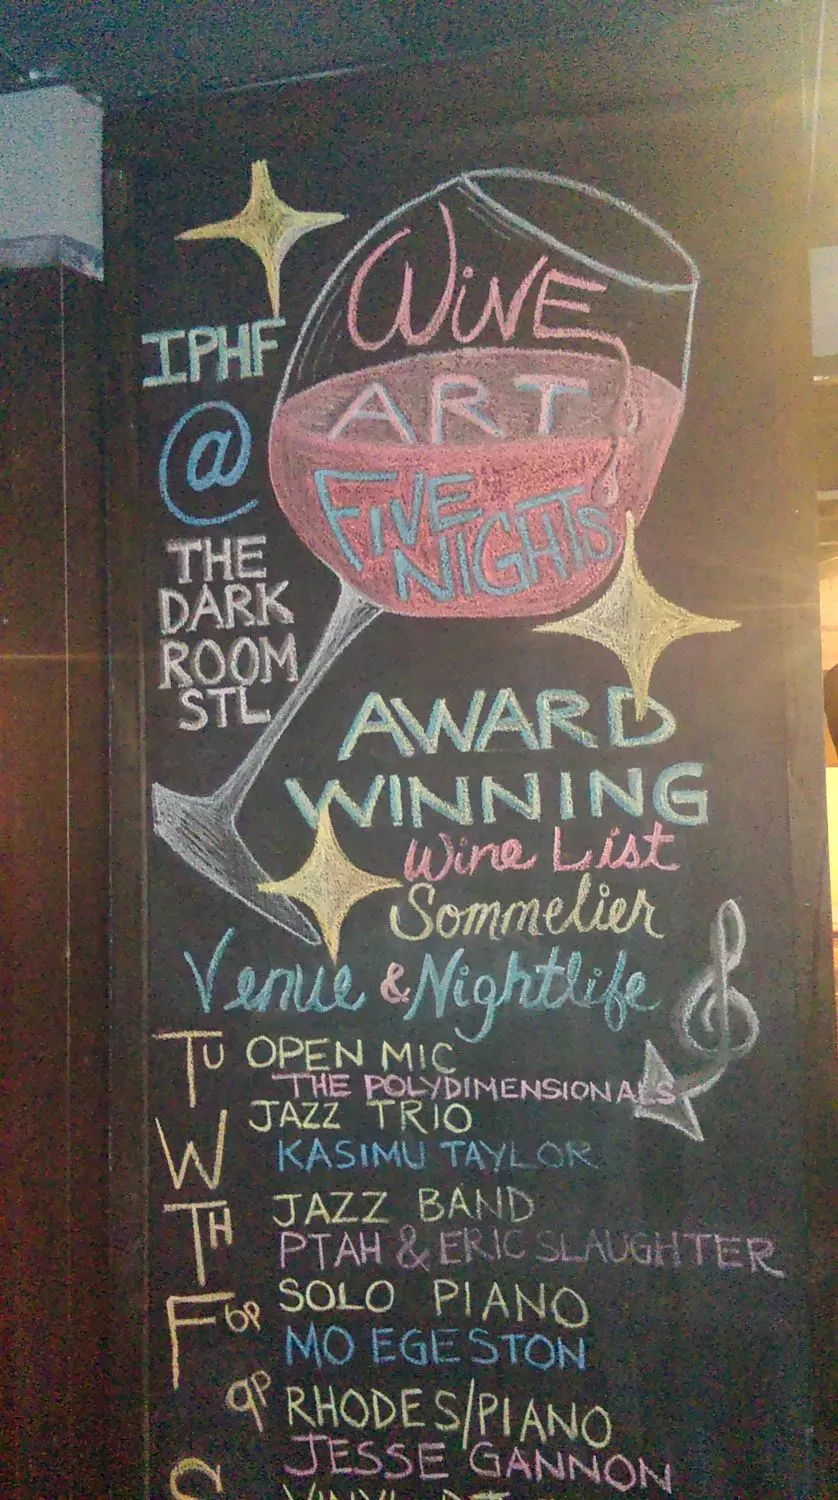 WINE
ART
FIVE
NIGHTS
IPHF
@
THE
DARK
ROOM
STL
AWARD
WINNING
Wine List
Sommelier
Venue & Nightlife
TU OPEN MIC
THE POLYDIMENSIONALS
W JAZZ TRIO
KASIMU TAYLOR
TH JAZZ BAND
PTAH & ERIC SLAUGHTER
F 6P SOLO PIANO
MO EGESTON
9P RHODES/PIANO
JESSE GANNON
S VINYL DJ